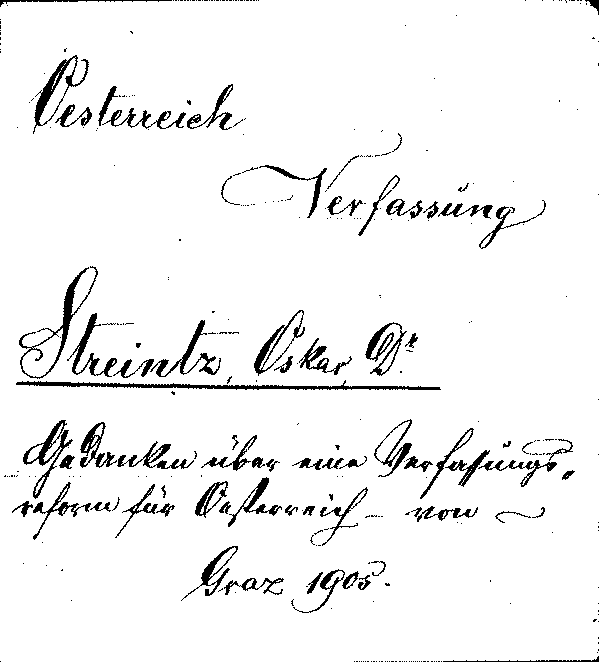 Oesterreich
Verfassung
Streintz, Oskar, Dr.
Gedanken über eine Verfassungs-
reform für Oesterreich – von ~
Graz 1905.